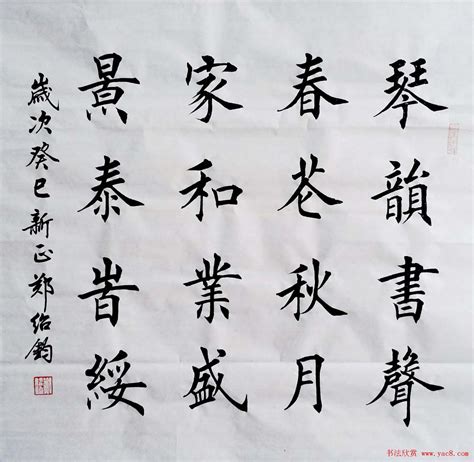 琴韻書聲
春花秋月
家和業盛
景泰旹綏
歲次癸巳新正鄭紹鈞
书法欣赏 www.yac8.com